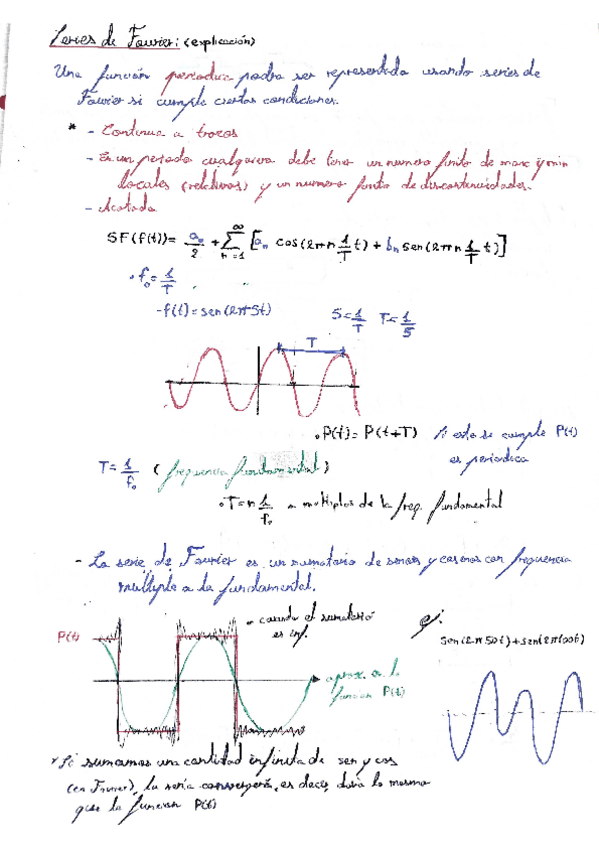 Series de Fourier: (explicación)
Una función periodica podra ser representada usando series de
Fourier si cumple ciertas condiciones.
* - Continua a trozos
- En un periodo cualquiera debe tener un numero finito de max y min
locales (relativos) y un numero finito de discontinuidades.
- Acotada
SF(f(t)) = a₀/2 + ∑_{n=1}^{∞} [aₙ cos(2πn 1/T t) + bₙ sen(2πn 1/T t)]
• f₀ = 1/T
- f(t) = sen(2π5t) 5 = 1/T T = 1/5
T
• P(t) = P(t+T) Si esto se cumple P(t)
es periodica
T = 1/f₀ (frequencia fundamental)
• T = n 1/f₀ multiplos de la freq. fundamental
- La serie de Fourier es un sumatorio de senos y cosenos con frequencia
multiple a la fundamental.
P(t) cuando el sumatorio
es inf.
ej:
sen(2π50t)+sen(2π100t)
aprox. a la
funcion P(t)
* Si sumamos una cantidad infinita de sen y cos
(en Fourier), la serie convergerá, es decir, daria lo mismo
que la funcion P(t)